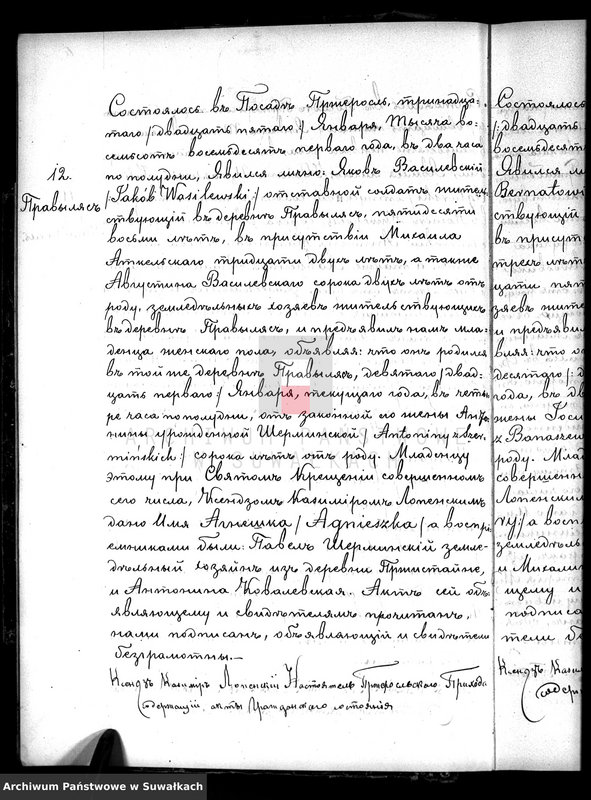 12.
Правылясъ
Состоялось въ Посадѣ Пржеросль, тринадца-
таго /:двадцать пятаго:/ Января, тысяча во-
семьсотъ восемьдесятъ перваго года, въ два часа
по полудни, явился лично: Яковъ Василевскій
/Jakób Wasilewski:/ отставной солдатъ житель
ствующій въ деревнѣ Правылясъ, пятидесяти
восьми лѣтъ, въ присутствіи Михаила
тридцати двухъ лѣтъ, а также
Августина Василевскаго сорока двухъ лѣтъ отъ
роду, земледѣльныхъ хозяевъ жительствующихъ
въ деревнѣ Правылясъ, и предъявилъ намъ мла-
денца женскаго пола, объявляя: что онъ родился
въ той же деревнѣ Правылясъ, девятаго /двад-
цать перваго:/ Января, текущаго года, въ четы
ре часа по полудни, отъ законной его жены Анто
нины урожденной Шерминской / Antoniny z Szer-
mińskich:/ сорока лѣтъ отъ роду. Младенцу
этому при Святомъ Крещеніи совершенномъ
сего числа, Ксендзомъ Казиміромъ Лопенскимъ
дано имя Агнешка / Agnieszka / а воспрі-
емниками были: Павелъ Шерминскій земле-
дѣльный хозяинъ изъ деревни Пришстайне,
и Антонина Ковалевская. Актъ сей объ
являющему и свидѣтелямъ прочитанъ,
нами подписанъ, объявляющій и свидѣтели
безграмотны.—
Ксендзъ Казиміръ Лопенскій Настоятель Пржеросльскаго Прихода
содержащій акты Гражданскаго состоянія
Состоялось
/:двадцать
восемьдесят
Явился
Bernatowi
ствующій
въ присут
трехъ лѣт
цати пят
зяевъ жите
и предъяви
вляя: что о
десятаго /:
года, въ дв
жены
z Banaszew
роду. Млад
совершенн
Лопенским
ry:/ а восп
земледѣль
и Михаил
щему и
подписа
тели бе
Ксендзъ Кази
содер
ARCHIWUM PAŃSTWOWE
W SUWAŁKACH
Archiwum Państwowe w Suwałkach